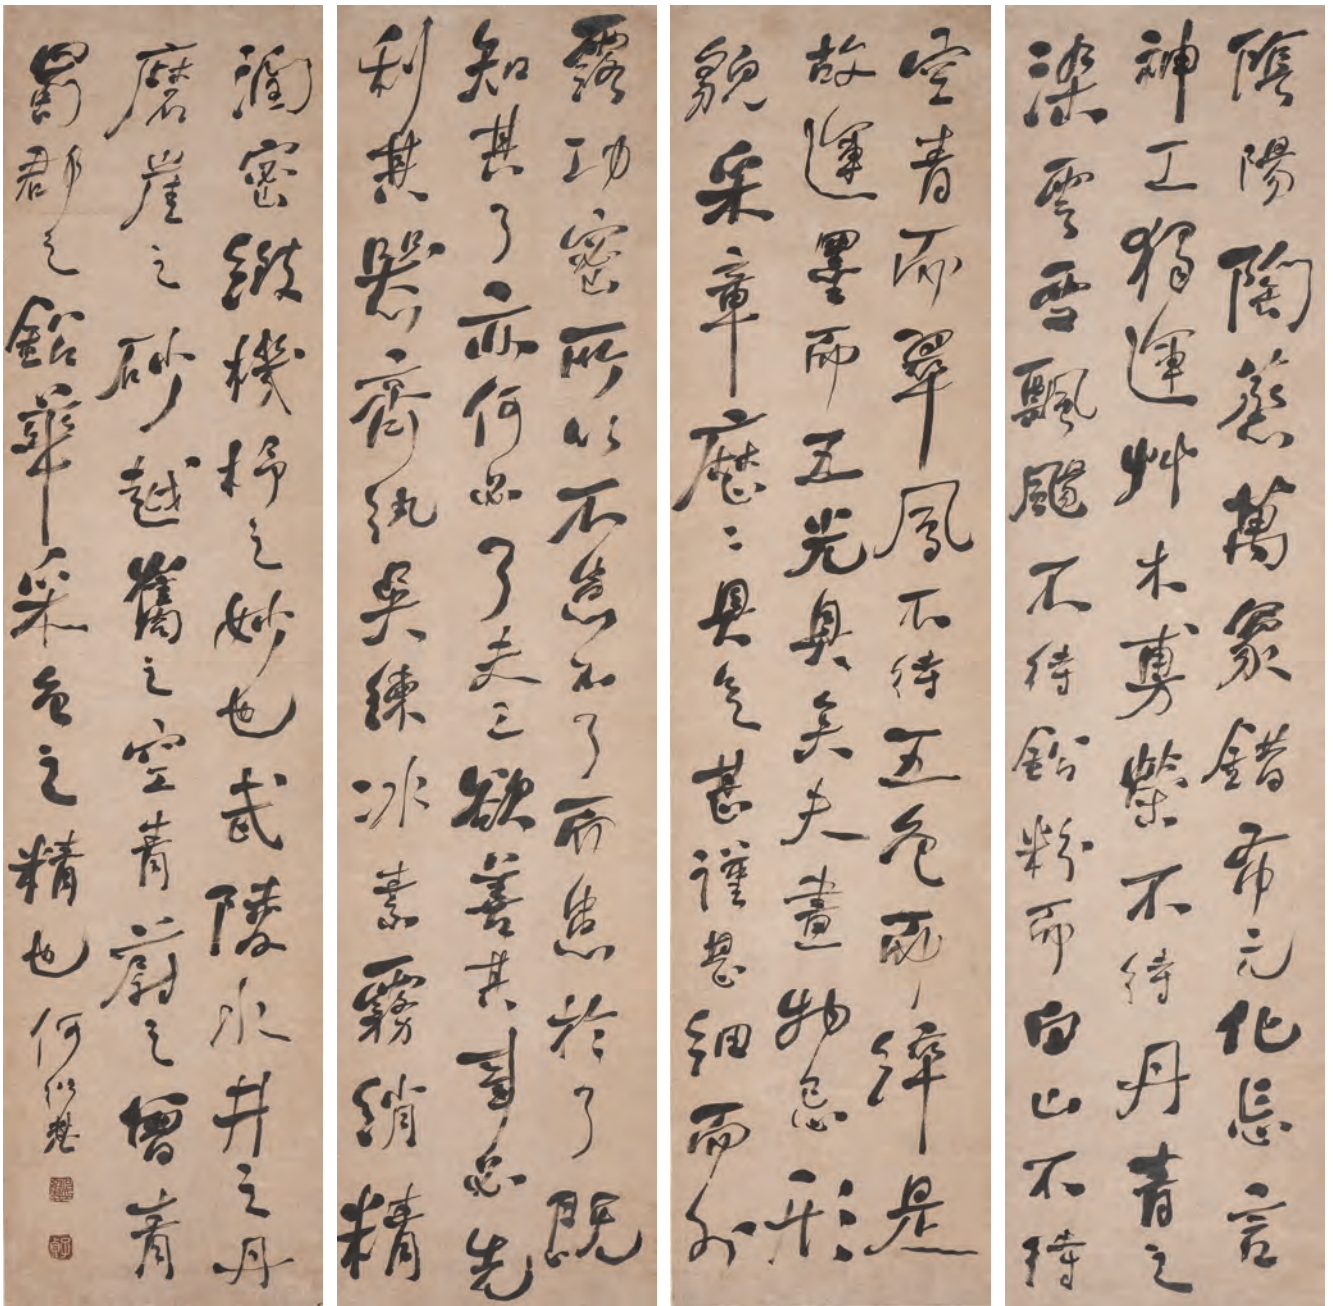 陰陽陶蒸萬象錯布元化忘言
神工獨運艸木旉榮不待丹青之
染雲雪飄颺不待鉛粉而白山不待
空青而翠鳳不待五色而綷是
故運墨而五光具矣夫畫物忌形
貌采章歷〻具足甚謹甚細而外
露功密所以不患不了而患於了既
知其了亦何必了夫工欲善其事必先
利其器齊紈吳練冰素霧綃精
潤密緻機杼之妙也武陵水井之丹
磨崖之砂越巂之空青蔚之曾青
蜀郡之鉛華采色之精也何